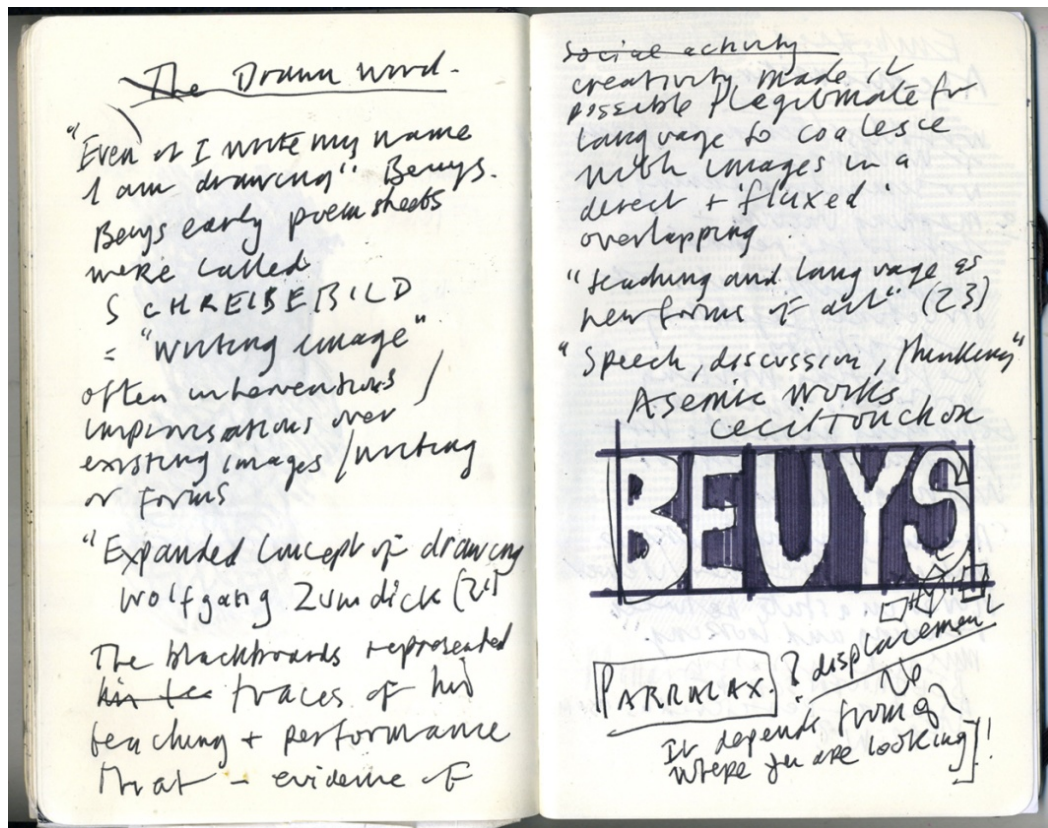 The Drawn word.
"Even if I write my name
I am drawing" Beuys.
Beuys early poem sheets
were called
SCHREIBEBILD
= "Writing image"
often interventions /
improvisations over
existing images / writing
or forms
"Expanded concept of drawing
Wolfgang Zumdick (21)
The blackboards represented
his traces of his
teaching + performance
that - evidence of
social activity
creativity made it
possible & legitimate for
language to coalesce
with images in a
direct + 'fluxed'
overlapping.
"teaching and language as
new forms of art" (23)
"Speech, discussion, thinking"
Asemic works
Cecil Touchon
BEUYS
PARRALAX. ? displacement
It depends from
where you are looking]!